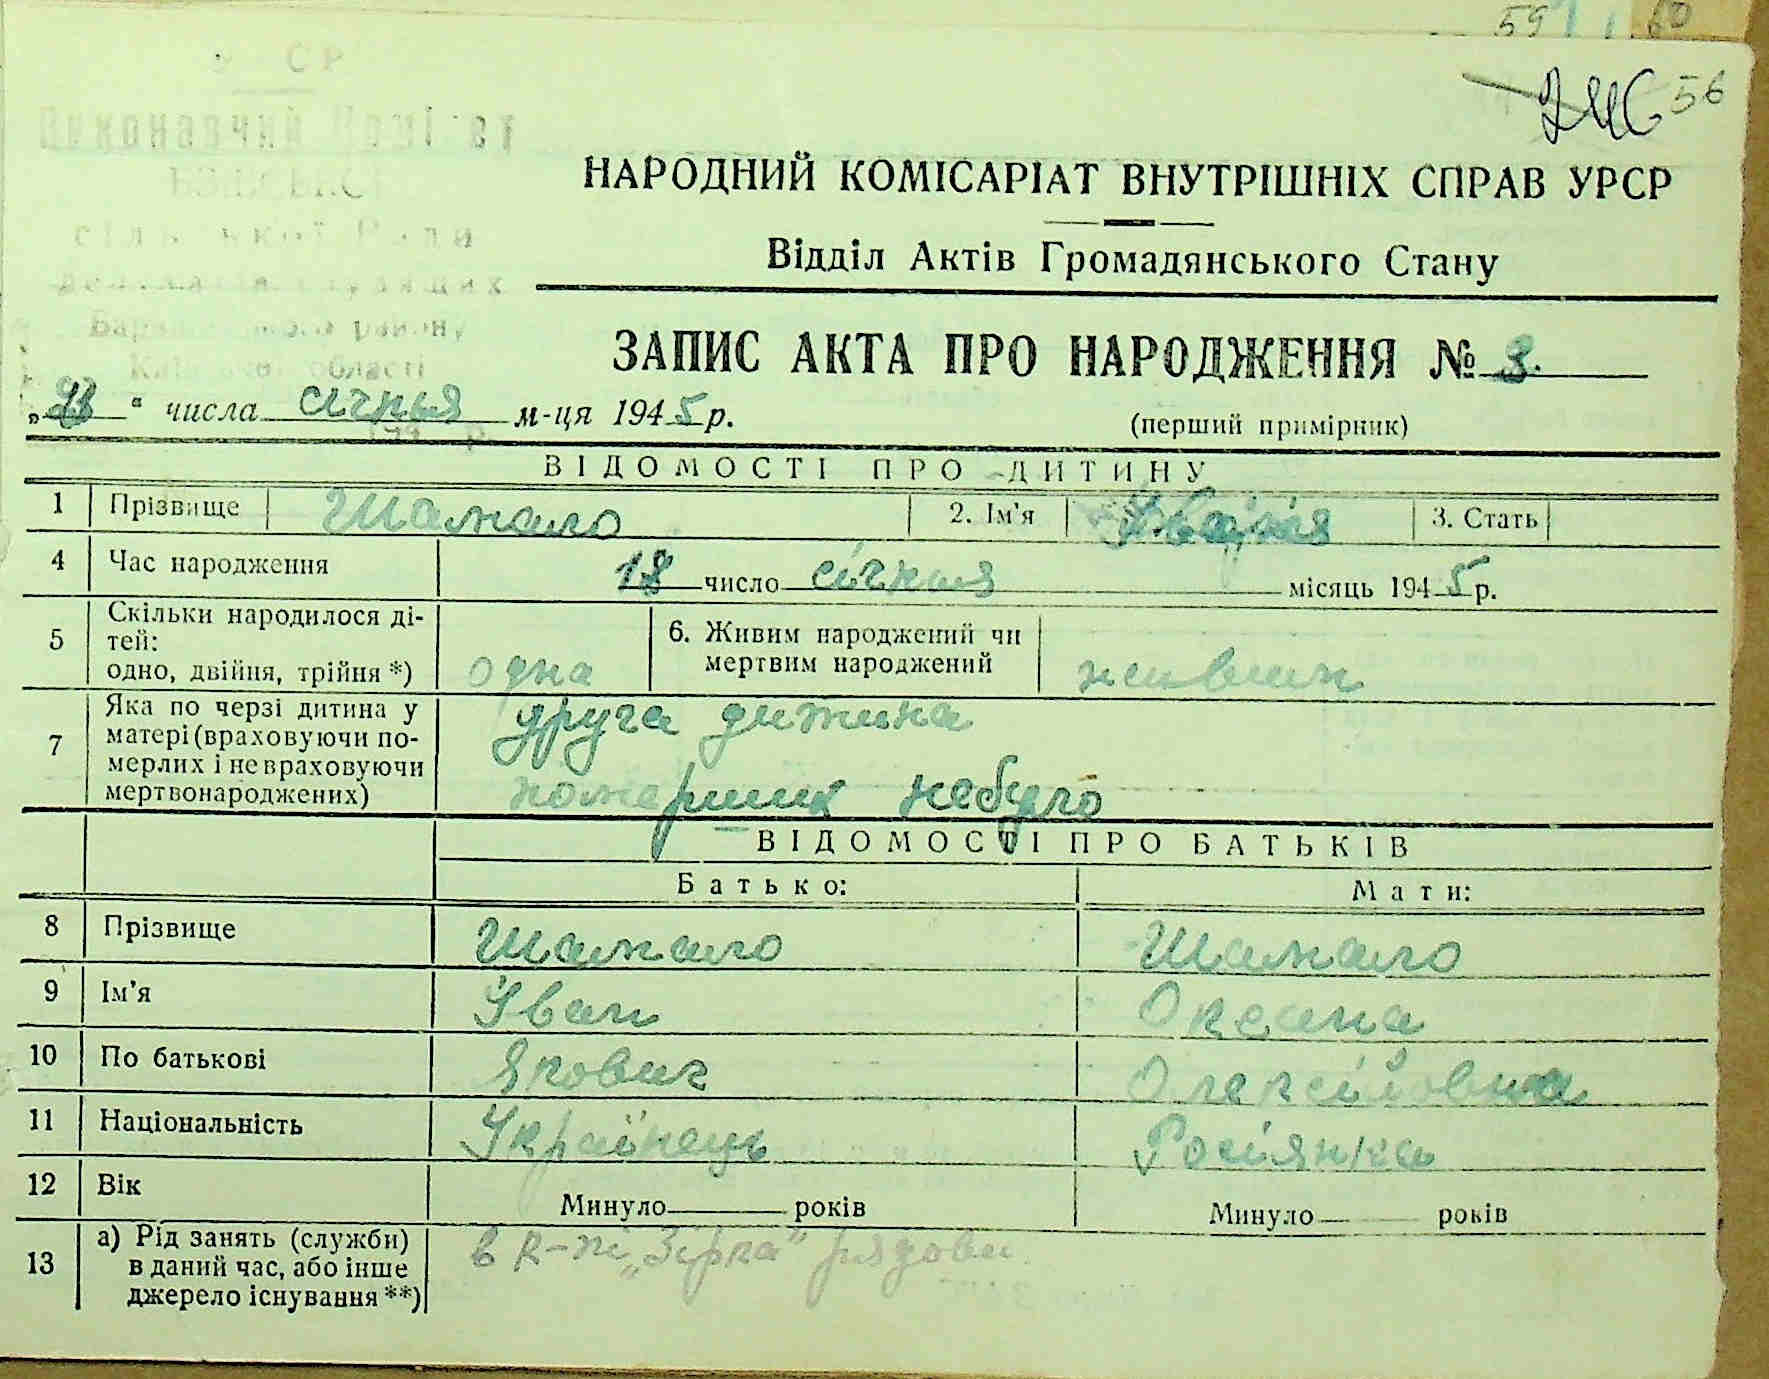 59 60
246 56
НАРОДНИЙ КОМІСАРІАТ ВНУТРІШНІХ СПРАВ УРСР
Відділ Актів Громадянського Стану
ЗАПИС АКТА ПРО НАРОДЖЕННЯ № 3.
„23“ числа січня м-ця 1945 р. (перший примірник)
ВІДОМОСТІ ПРО ДИТИНУ
1 Прізвище Шамало 2. Ім'я 3. Стать
4 Час народження 18 число січня місяць 1945 р.
5 Скільки народилося ді-
тей:
одно, двійня, трійня *) одна 6. Живим народжений чи
мертвим народжений живим
7 Яка по черзі дитина у
матері (враховуючи по-
мерлих і не враховуючи
мертвонароджених) друга дитина
померших небуло
ВІДОМОСТІ ПРО БАТЬКІВ
Батько: Мати:
8 Прізвище Шамало Шамало
9 Ім'я Іван Оксана
10 По батькові Якович Олексійовна
11 Національність Українець Росіянка
12 Вік Минуло років Минуло років
13 а) Рід занять (служби)
в даний час, або інше
джерело існування **) в к-пі „Зірка" рядови